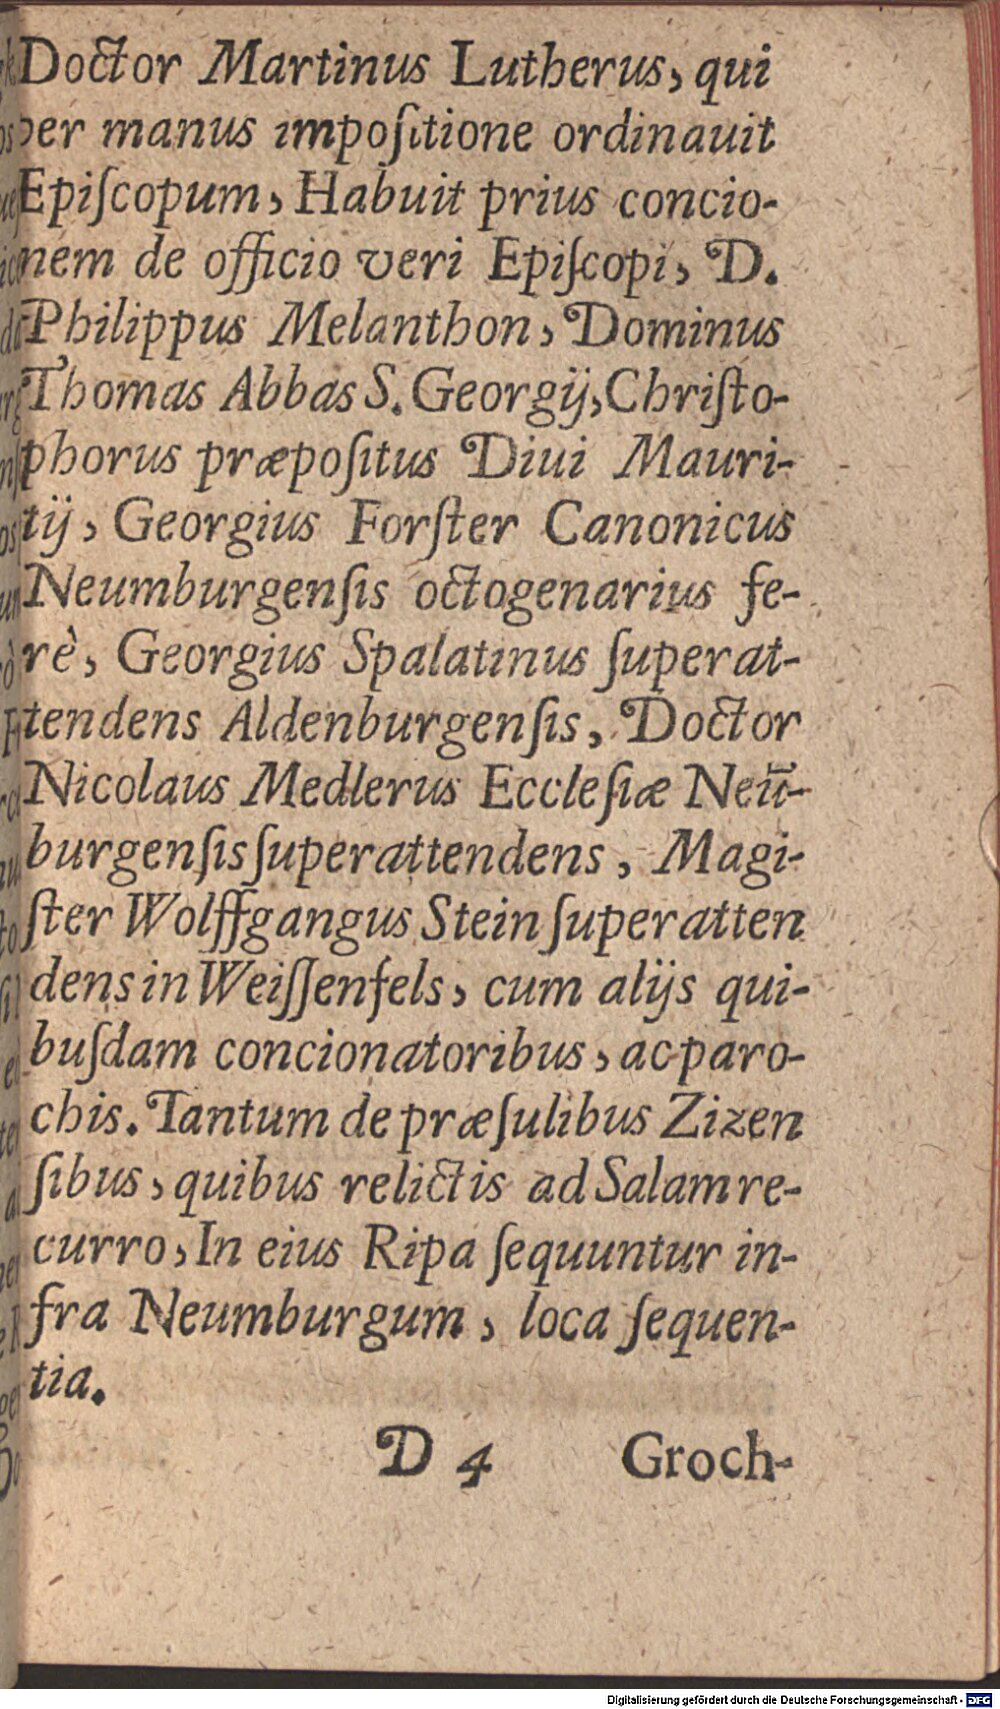 Doctor Martinus Lutherus, qui
per manus impoſitione ordinauit
Epiſcopum, Habuit prius concio-
nem de officio veri Epiſcopi, D.
Philippus Melanthon, Dominus
Thomas Abbas S. Georgij, Chriſto-
phorus præpoſitus Diui Mauri-
tij, Georgius Forſter Canonicus
Neumburgenſis octogenarius fe-
rè, Georgius Spalatinus ſuperat-
tendens Aldenburgenſis, Doctor
Nicolaus Medlerus Eccleſiæ Neū-
burgenſis ſuperattendens, Magi-
ſter Wolffgangus Stein ſuperatten
dens in Weiſſenfels, cum alijs qui-
buſdam concionatoribus, ac paro-
chis. Tantum de præſulibus Zizen
ſibus, quibus relictis ad Salam re-
curro, In eius Ripa ſequuntur in-
fra Neumburgum, loca ſequen-
tia.
D 4 Groch-
Digitalisierung gefördert durch die Deutsche Forschungsgemeinschaft - DFG